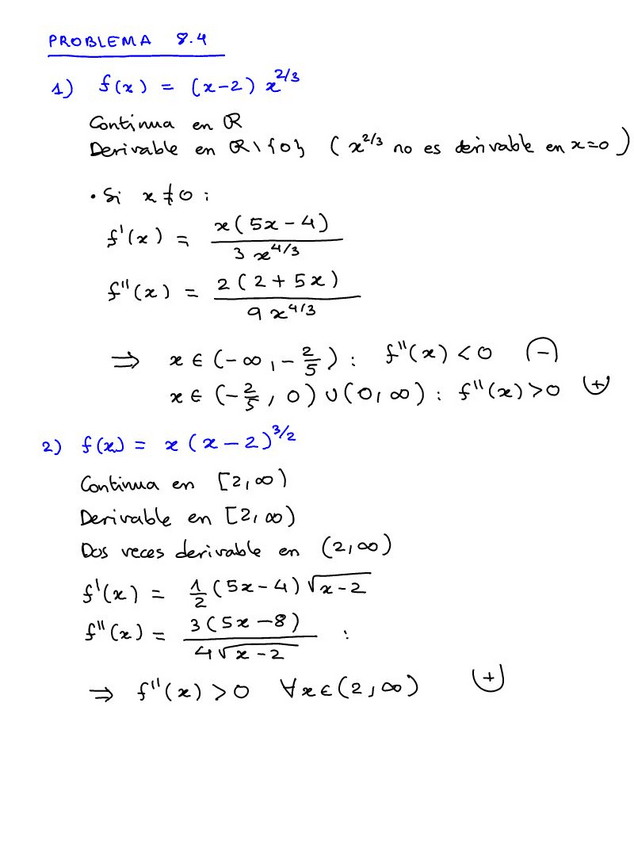 PROBLEMA 8.4
1) f(x) = (x-2) x^{2/3}
Continua en ℝ
Derivable en ℝ\{0} (x^{2/3} no es derivable en x=0)
• Si x≠0:
f'(x) = \frac{x(5x-4)}{3x^{4/3}}
f''(x) = \frac{2(2+5x)}{9x^{4/3}}
⇒ x ∈ (-∞, -\frac{2}{5}): f''(x) < 0 (-)
x ∈ (-\frac{2}{5}, 0) ∪ (0, ∞): f''(x) > 0 (+)
2) f(x) = x(x-2)^{3/2}
Continua en [2,∞)
Derivable en [2,∞)
Dos veces derivable en (2,∞)
f'(x) = \frac{1}{2}(5x-4)\sqrt{x-2}
f''(x) = \frac{3(5x-8)}{4\sqrt{x-2}} :
⇒ f''(x) > 0 ∀x∈(2,∞) (+)